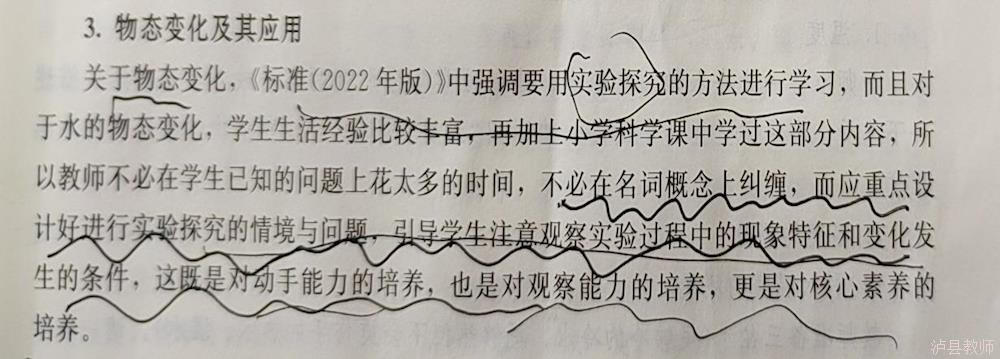 3. 物态变化及其应用
关于物态变化,《标准(2022年版)》中强调要用实验探究的方法进行学习，而且对
于水的物态变化，学生生活经验比较丰富，再加上小学科学课中学过这部分内容，所
以教师不必在学生已知的问题上花太多的时间，不必在名词概念上纠缠，而应重点设
计好进行实验探究的情境与问题，引导学生注意观察实验过程中的现象特征和变化发
生的条件，这既是对动手能力的培养，也是对观察能力的培养，更是对核心素养的
培养。
泸县教师